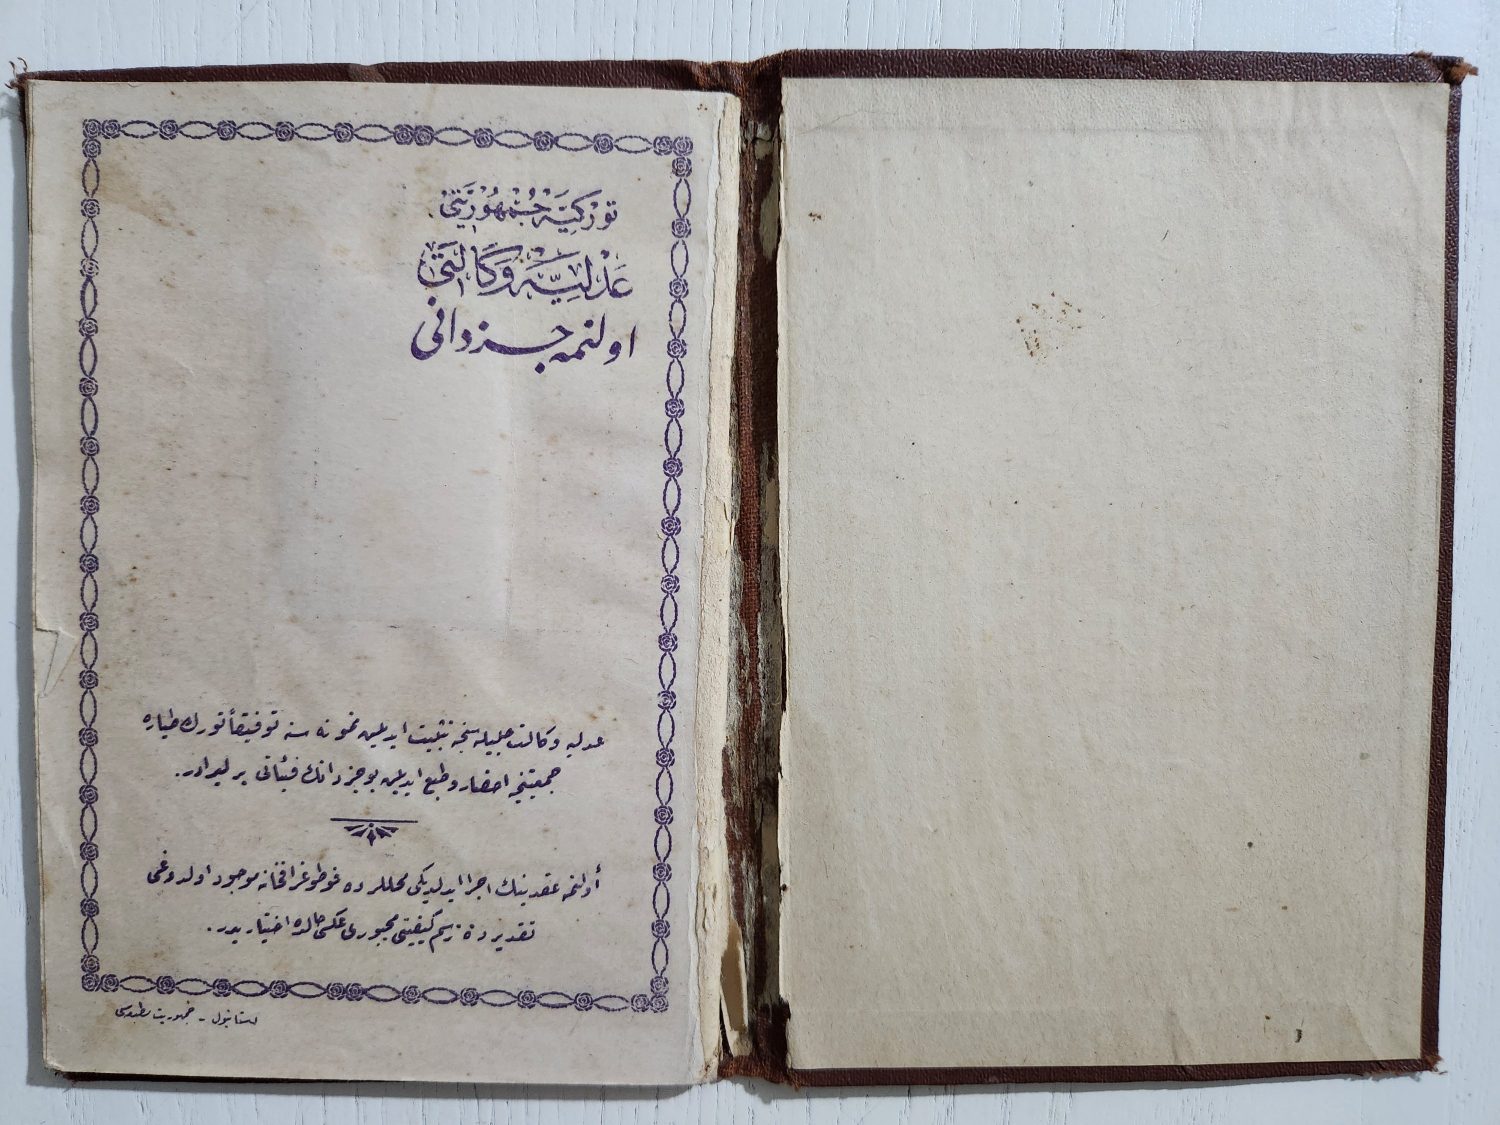 توركیه جمهوریتی
عدلیه وكالتی
اولنمه جزدانی
عدلیه وكالت جلیله سنجه تثبیت ایدیلن نمونه سنه توفیقاً تورك طیاره
جمعیتنجه احضار و طبع ایدیلن بو جزدانك فیئاتی بر لیرادر.
أولنمه عقدینك اجرا ایدلدیكی محللرده فوطوغرافخانه موجود اولدوغی
تقدیرده رسم كیفیتی مجبوری عكس حالده اختیاریدر.
استانبول - جمهوریت مطبعه سی